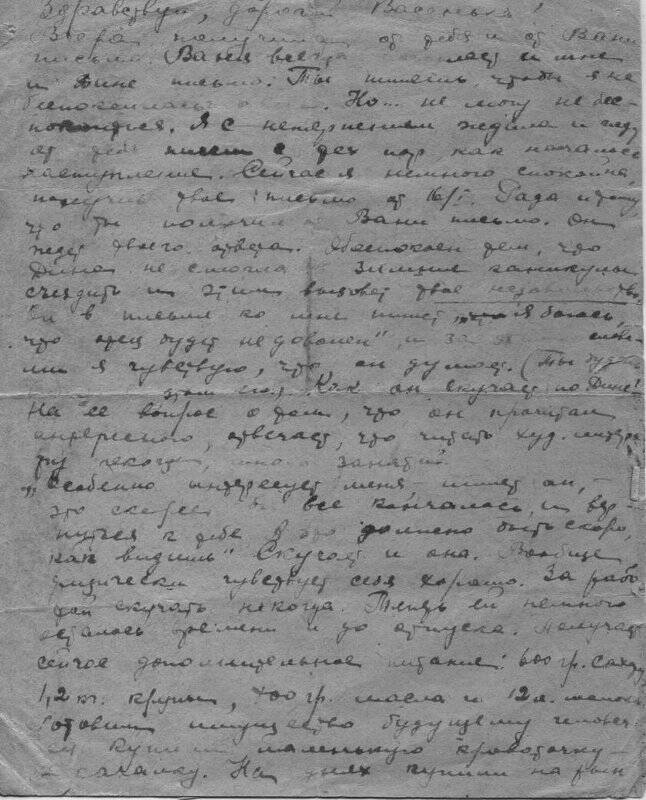 Здравствуй, дорогой Васенька!
Вчера получила от тебя и от Вани
письма. Ваня всегда и мне
и Дине письмо. Ты пишешь, чтобы я не
беспокоилась о Но... не могу не бес-
покоиться. Я с нетерпением ждала и жду
от тебя писем с тех пор, как началось
наступление. Сейчас я немного спокойна,
получив твое письмо от 16/I. Рада и тому
что ты получил от Вани письмо. Он
ждет твоего ответа. Обеспокоен тем, что
Дина не смогла в зимние каникулы
съездить и этим вызовет твое
Он в письме ко мне пишет, боюсь
что отец будет недоволен", и за
я чувствую, что он думает. (Ты
Как он скучает по Дине!
На ее вопрос о том, что он прочитал
интересного, отвечает, что читать худ. литера
туру некогда, много занятий.
„Особенно интересует меня пишет он, -
это скорее бы все кончалось, и вер-
нуться к тебе. А это должно быть скоро,
как видишь" Скучает и она. Вообще
физически чувствует себя хорошо. За рабо
той скучать некогда. Теперь ей немного
осталось времени и до отпуска. Получает
сейчас дополнительное питание: 600 гр. сахару
1,2 кг. крупы, 400 гр. масла и 12 л. молока
Готовим имущество будущему челове-
ку. Купили маленькую кроваточку -
- качалку. На днях купили на рын